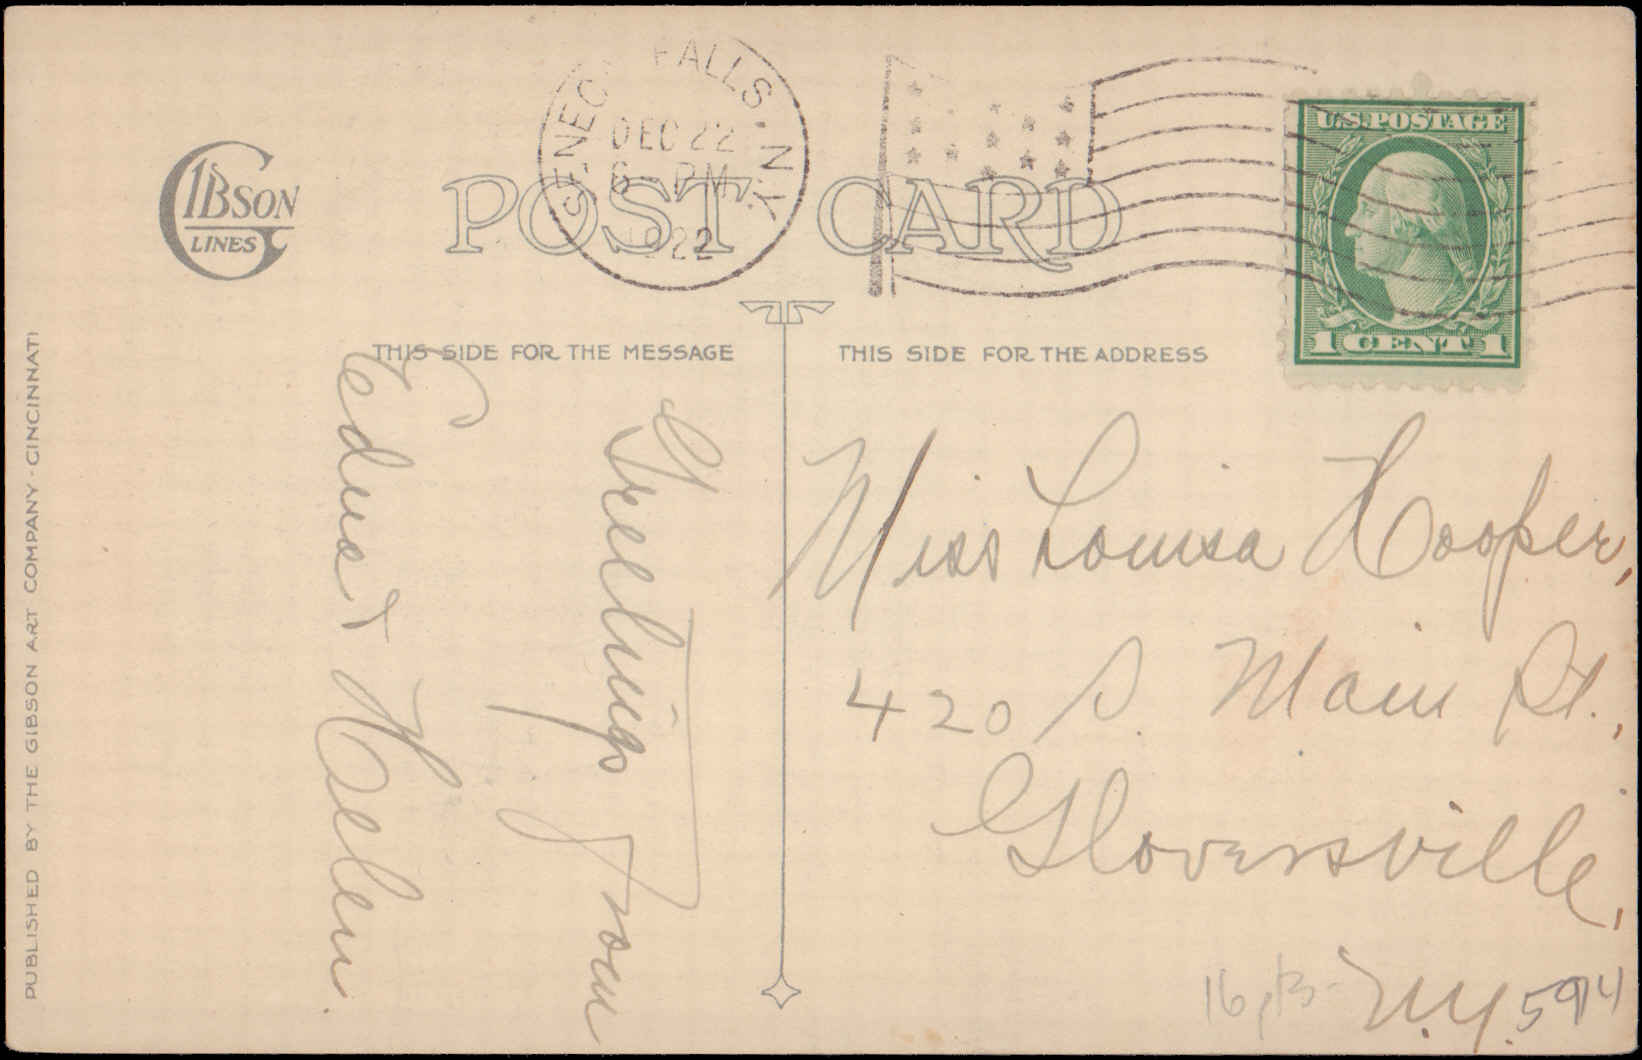 GIBSON
LINES
SENECA FALLS. N.Y.
DEC 22
6 - PM
1922
POST CARD
U.S. POSTAGE
1 CENT 1
THIS SIDE FOR THE MESSAGE
THIS SIDE FOR THE ADDRESS
Greetings from
Edna & Helen.
Miss Louisa Hooper,
420 S. Main St.,
Gloversville,
N.Y.
594
PUBLISHED BY THE GIBSON ART COMPANY - CINCINNATI